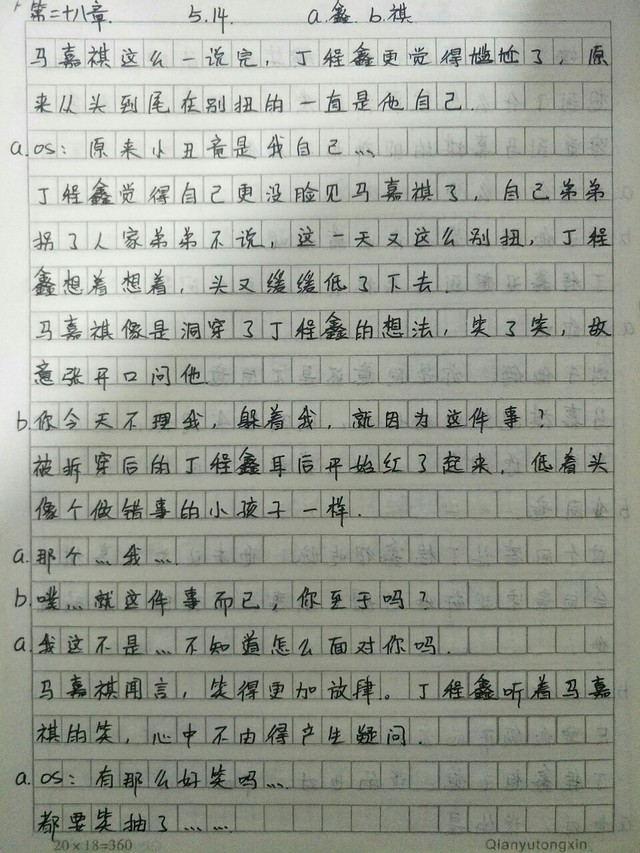 第二十八章. 5.14. a.鑫. b.祺
马嘉祺这么一说完, 丁程鑫更觉得尴尬了, 原
来从头到尾在别扭的一直是他自己.
a.os: 原来小丑竟是我自己...
丁程鑫觉得自己更没脸见马嘉祺了, 自己弟弟
拐了人家弟弟不说, 这一天又这么别扭, 丁程
鑫想着想着, 头又缓缓低了下去.
马嘉祺像是洞穿了丁程鑫的想法, 笑了笑, 故
意张开口问他
b.你今天不理我, 躲着我, 就因为这件事?
被拆穿后的丁程鑫耳后开始红了起来, 低着头
像个做错事的小孩子一样.
a.那个...我...
b.噗...就这件事而已, 你至于吗?
a.我这不是...不知道怎么面对你吗.
马嘉祺闻言, 笑得更加放肆。丁程鑫听着马嘉
祺的笑, 心中不由得产生疑问.
a.os: 有那么好笑吗...
都要笑抽了......
20×18=360 Qianyutongxin